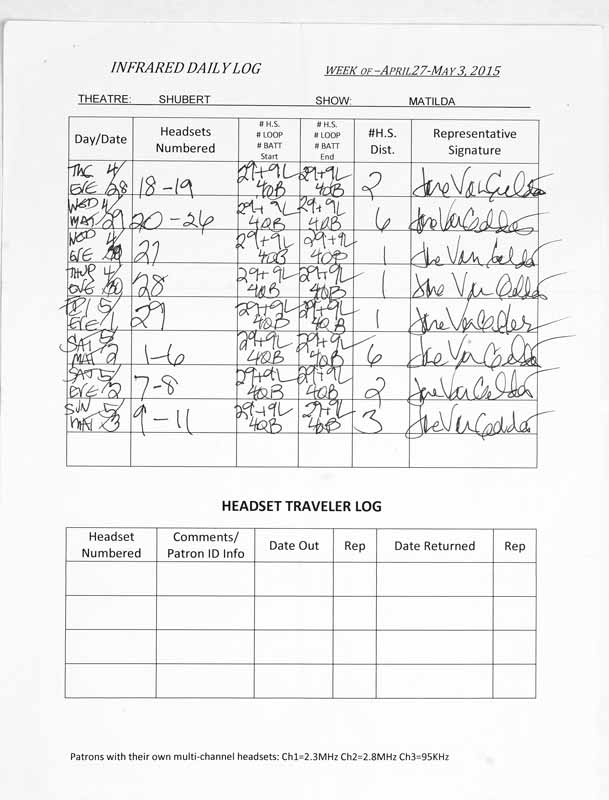 INFRARED DAILY LOG WEEK OF –APRIL27-MAY 3, 2015
THEATRE: SHUBERT SHOW: MATILDA
Day/Date Headsets Numbered # H.S. # LOOP # BATT Start # H.S. # LOOP # BATT End #H.S. Dist. Representative Signature
TUE 4/28 EVE 18-19 29+9L 40B 29+9L 40B 2
WED 4/29 MAT 20-26 29+9L 40B 29+9L 40B 6
WED 4/ EVE 27 29+9L 40B 29+9L 40B 1
THUR 4/30 EVE 28 29+9L 40B 29+9L 40B 1
FRI 5/1 EVE 29 29+9L 40B 29+9L 40B 1
SAT 5/2 MAT 1-6 29+9L 40B 29+9L 40B 6
SAT 5/2 EVE 7-8 29+9L 40B 29+9L 40B 2
SUN 5/3 MAT 9-11 29+9L 40B 29+9L 40B 3
HEADSET TRAVELER LOG
Headset Numbered Comments/ Patron ID Info Date Out Rep Date Returned Rep
Patrons with their own multi-channel headsets: Ch1=2.3MHz Ch2=2.8MHz Ch3=95KHz